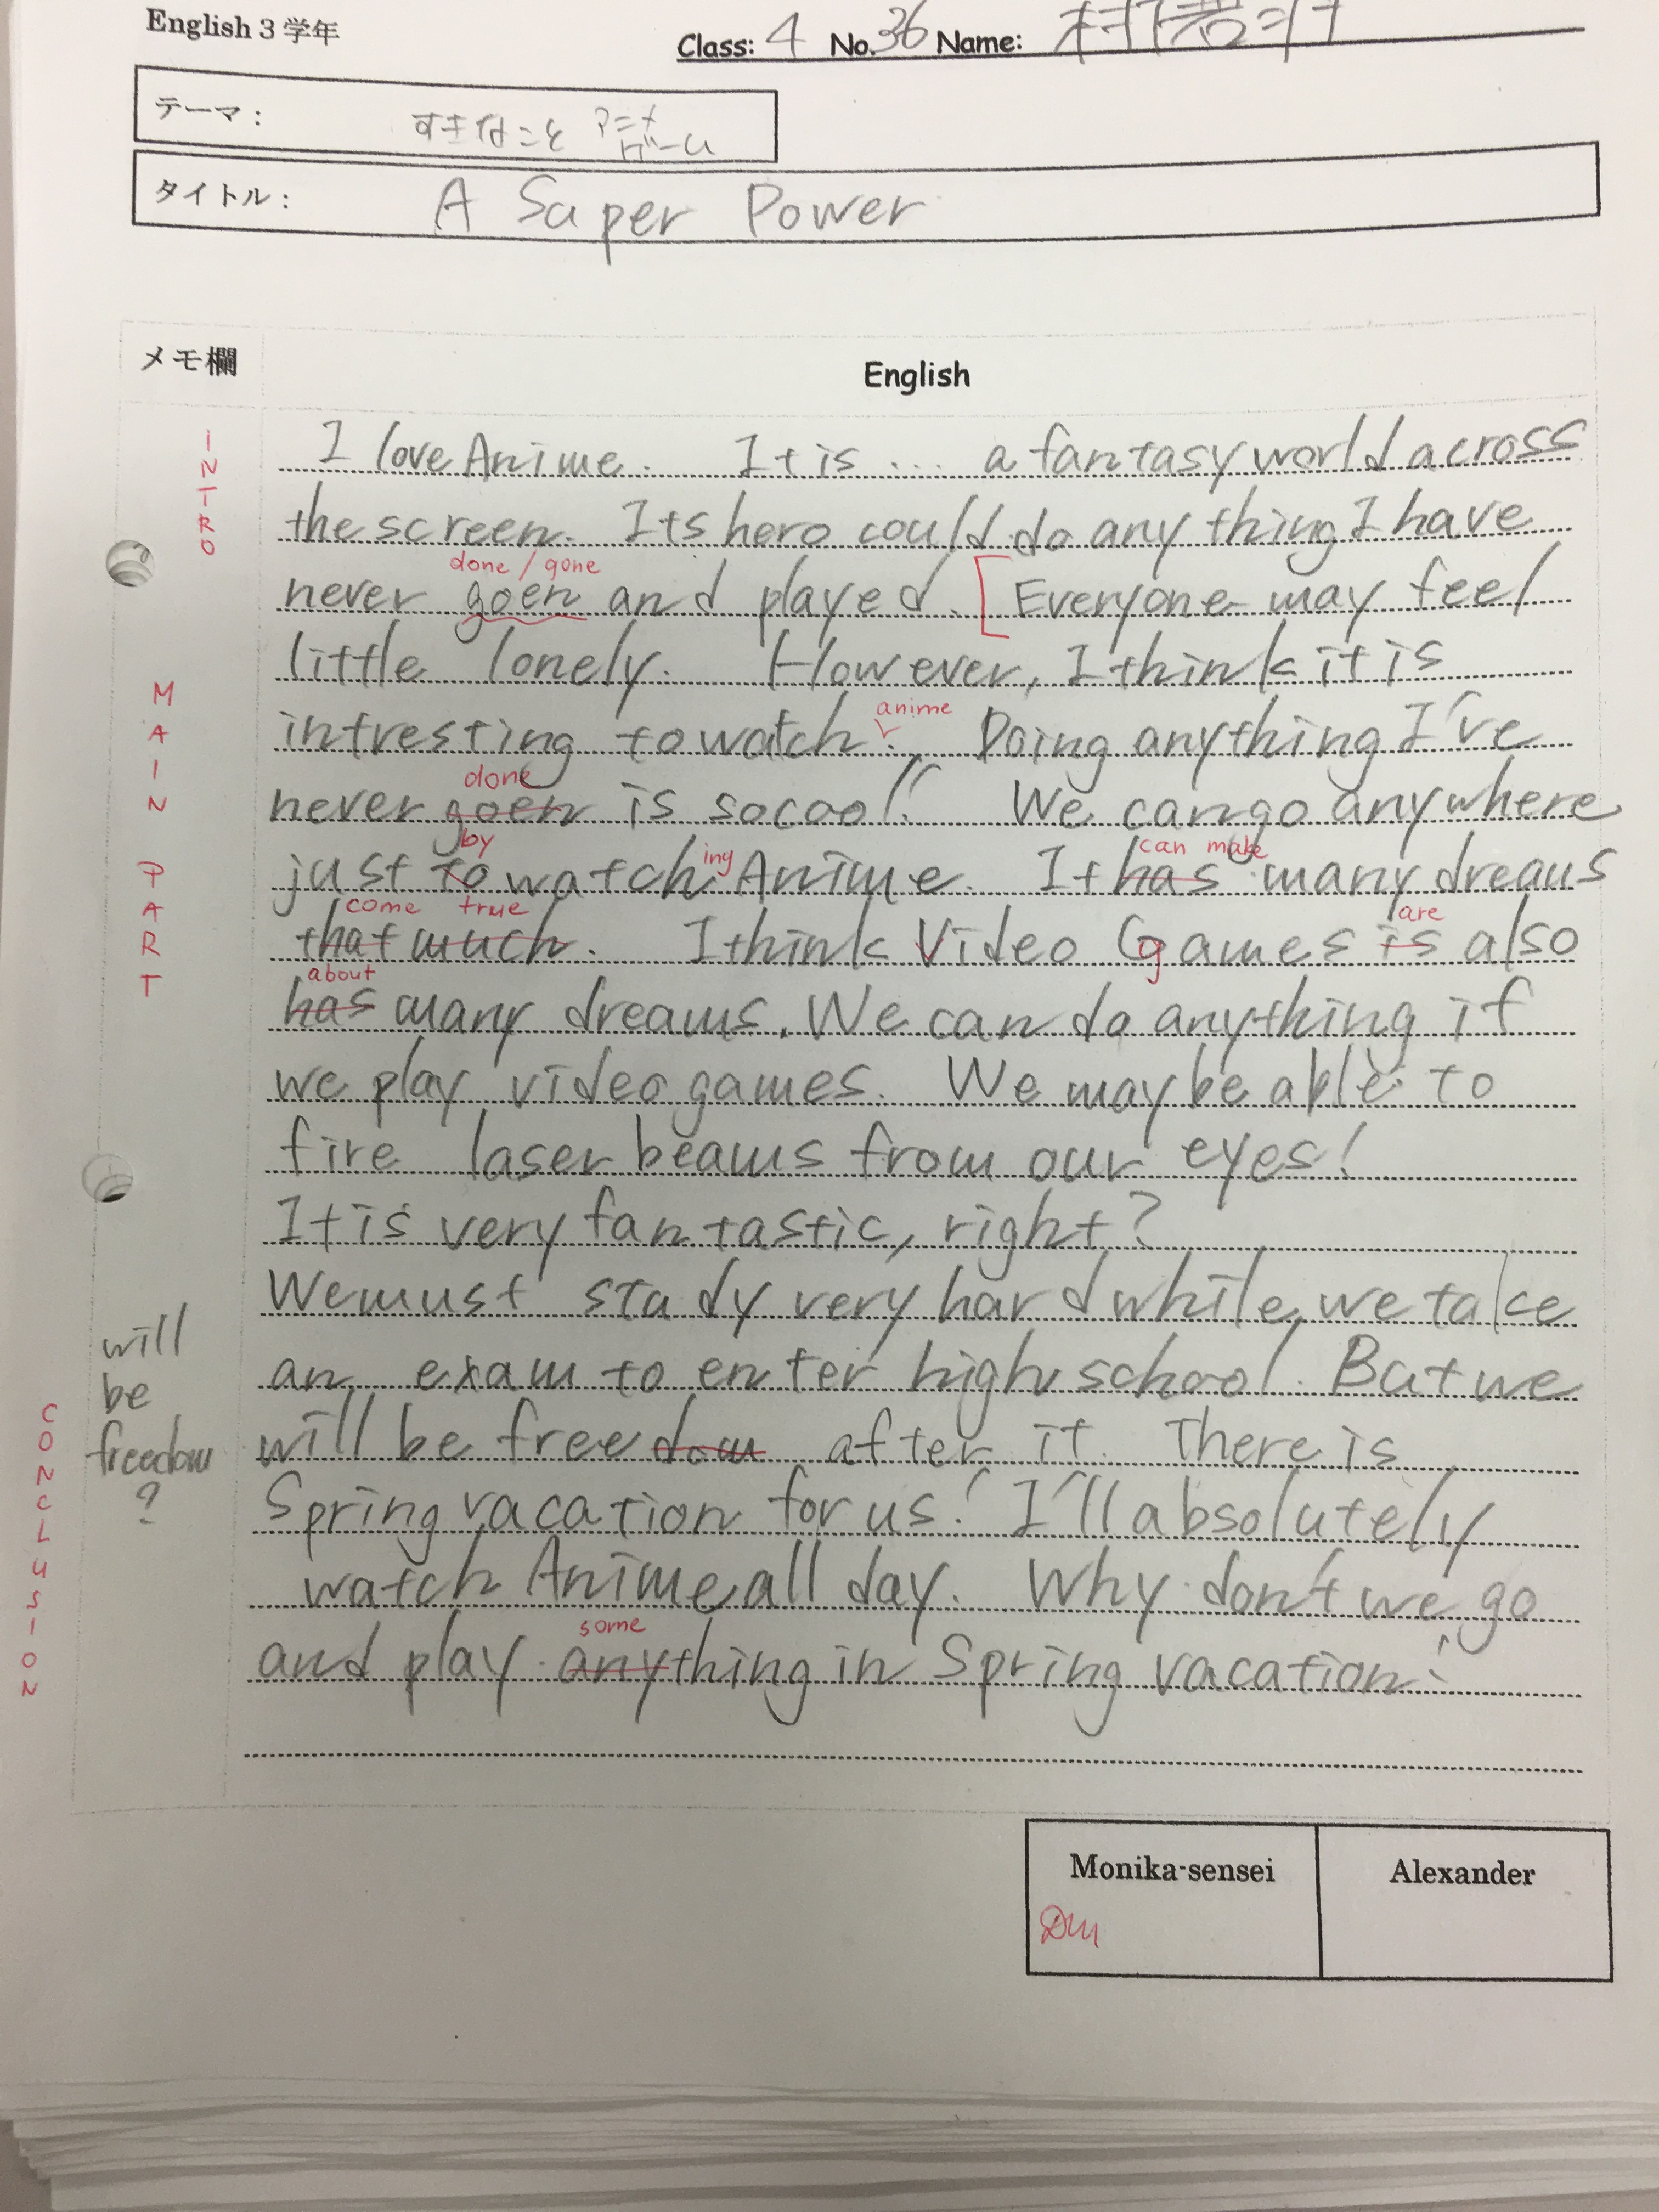 English 3 学年
Class: 4 No. 36 Name:
テーマ: すきなこと アニメ
ゲーム
タイトル: A Super Power
メモ欄 English
INTRO
I love Anime. It is ... a fantasy world across
the screen. Its hero could do any thing I have
done / gone
never goen and played. [Everyone may feel
little lonely. However, I think it is
MAIN PART
anime
intresting to watch. Doing anything I've
done
never goen is so cool! We can go anywhere
by ing can make
just to watch Anime. It has many dreams
come true are
that much. I think Video Games is also
g
about
has many dreams. We can do anything if
we play video games. We may be able to
fire laser beams from our eyes!
It is very fantastic, right?
We must study very hard while we take
an exam to enter high school. But we
will be freedom after it. There is
will
be
freedom
?
CONCLUSION
Spring vacation for us! I'll absolutely
watch Anime all day. Why don't we go
some
and play anything in Spring vacation!
Monika-sensei Alexander